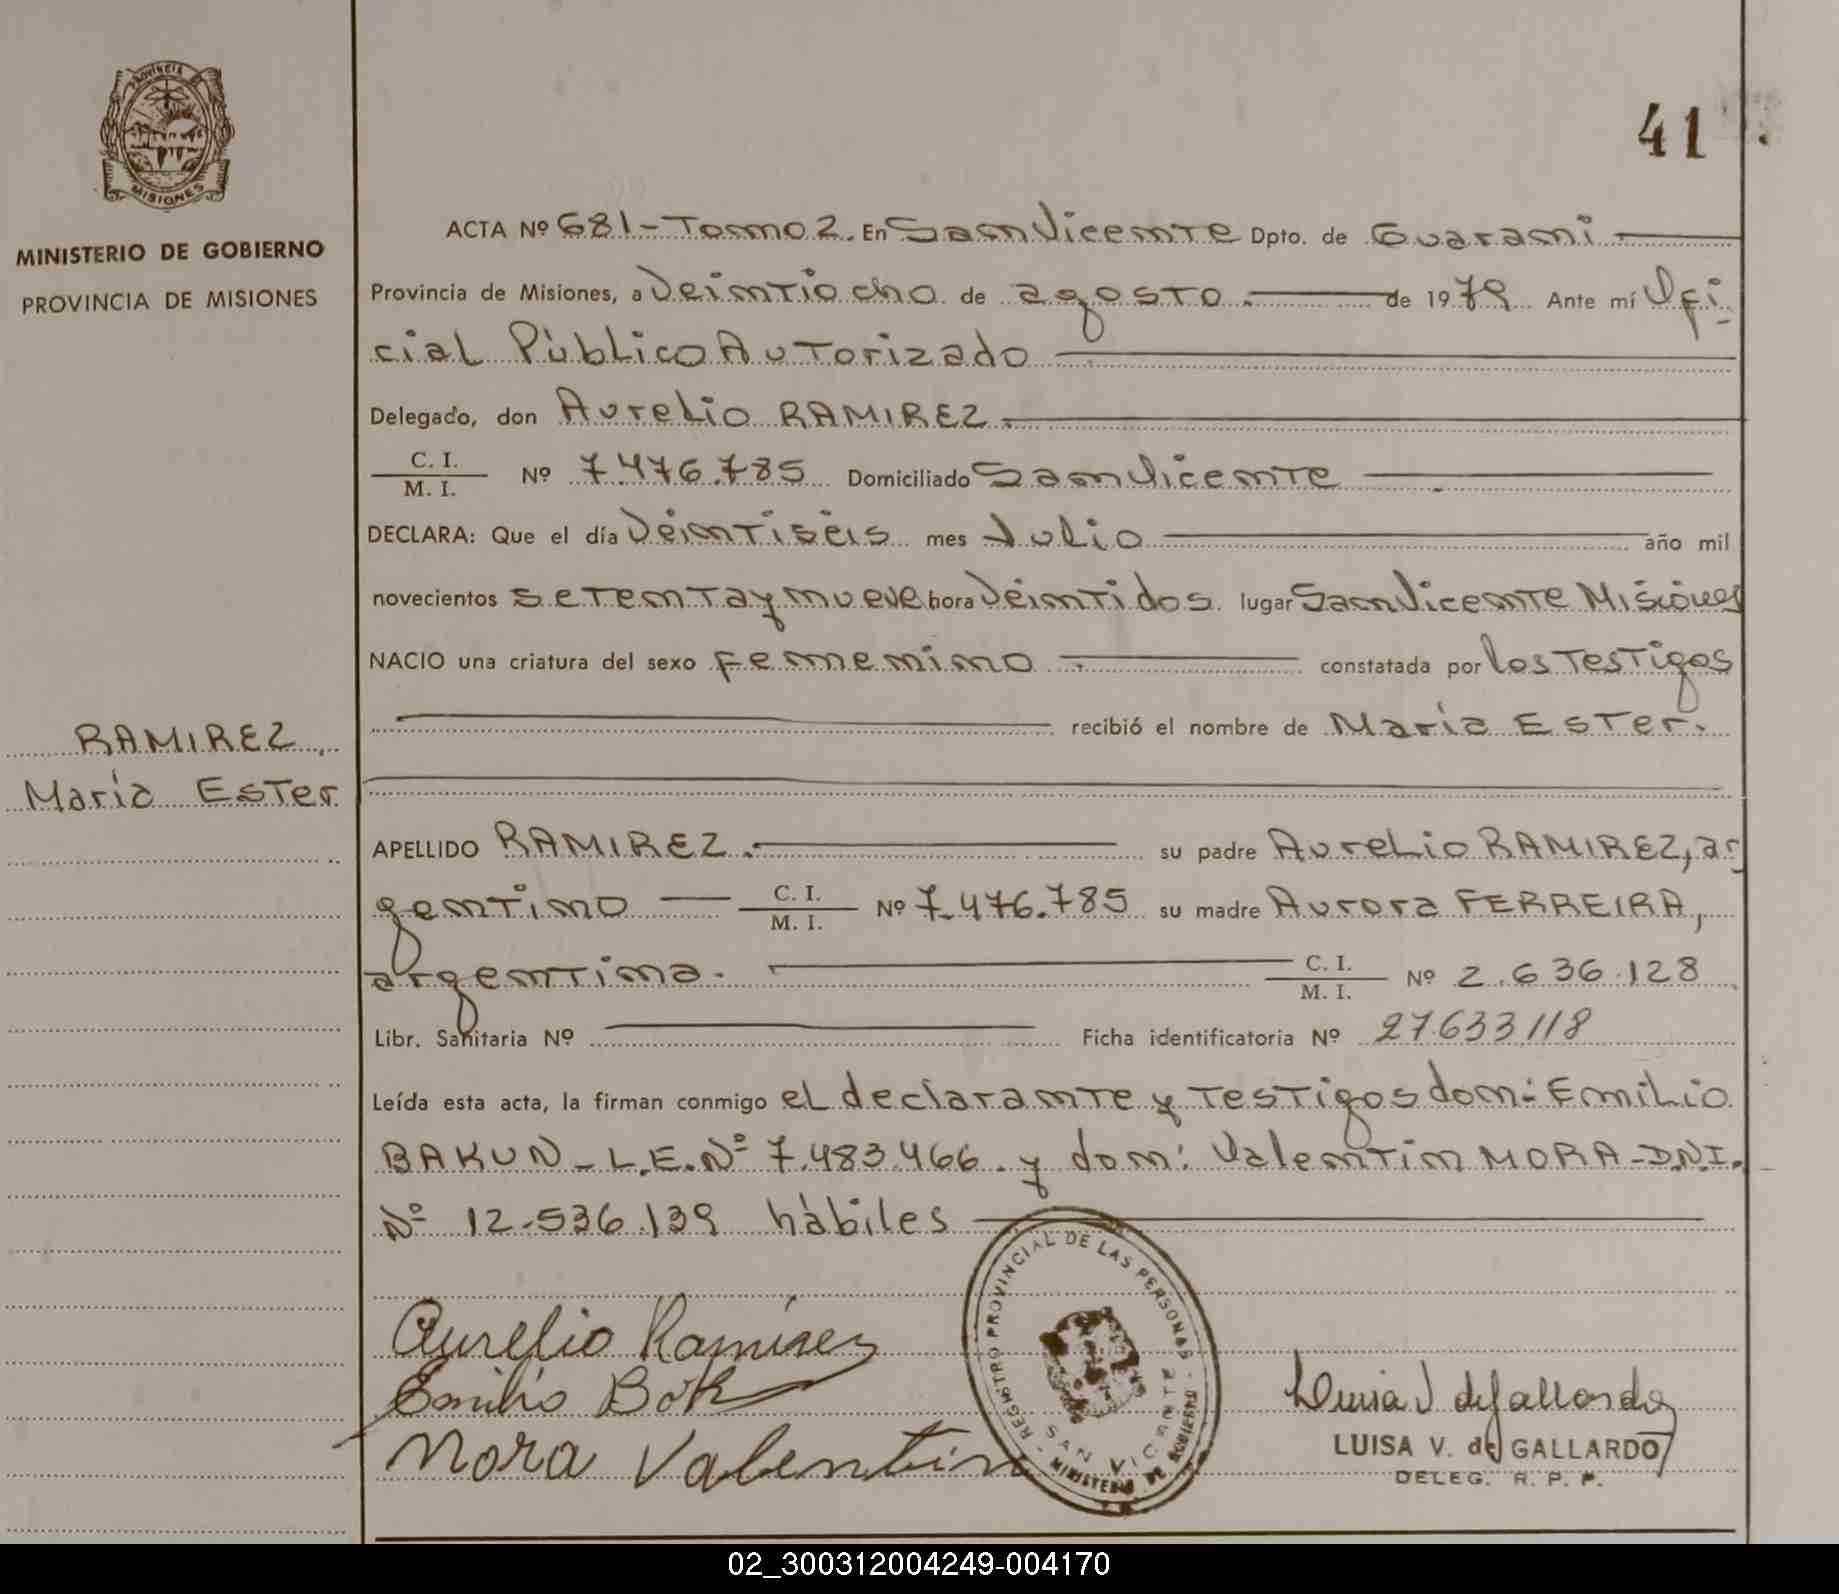 PROVINCIA
MISIONES
MINISTERIO DE GOBIERNO
PROVINCIA DE MISIONES
41
ACTA Nº 681 - Tomo 2. En San Vicente Dpto. de Guarani
Provincia de Misiones, a Veintiocho de agosto. de 1979 Ante mí Ofi-
cial Público Autorizado
Delegado, don Aurelio RAMIREZ.
C. I.
M. I. Nº 7.476.785 Domiciliado San Vicente
DECLARA: Que el día Veintiséis mes Julio año mil
novecientos setenta y nueve hora Veintidos. lugar San Vicente Misiones
NACIO una criatura del sexo Femenino. constatada por los Testigos
recibió el nombre de María Ester.
RAMIREZ,
María Ester
APELLIDO RAMIREZ. su padre Aurelio RAMIREZ, ar
gentino C. I.
M. I. Nº 7.476.785 su madre Aurora FERREIRA,
argentina. C. I.
M. I. Nº 2.636.128
Libr. Sanitaria Nº Ficha identificatoria Nº 27.633.118
Leída esta acta, la firman conmigo el declarante y Testigos don: Emilio
BAKUN - L.E. Nº 7.483.466. y don: Valentin MORA - D.N.I.
Nº 12.536.139 hábiles
Aurelio Ramirez
Emilio Bok
Mora Valentin
REGISTRO PROVINCIAL DE LAS PERSONAS
SAN VICENTE
MINISTERIO DE GOBIERNO
Luisa V de Gallardo
LUISA V. de GALLARDO
DELEG. R. P. P.
02_300312004249-004170